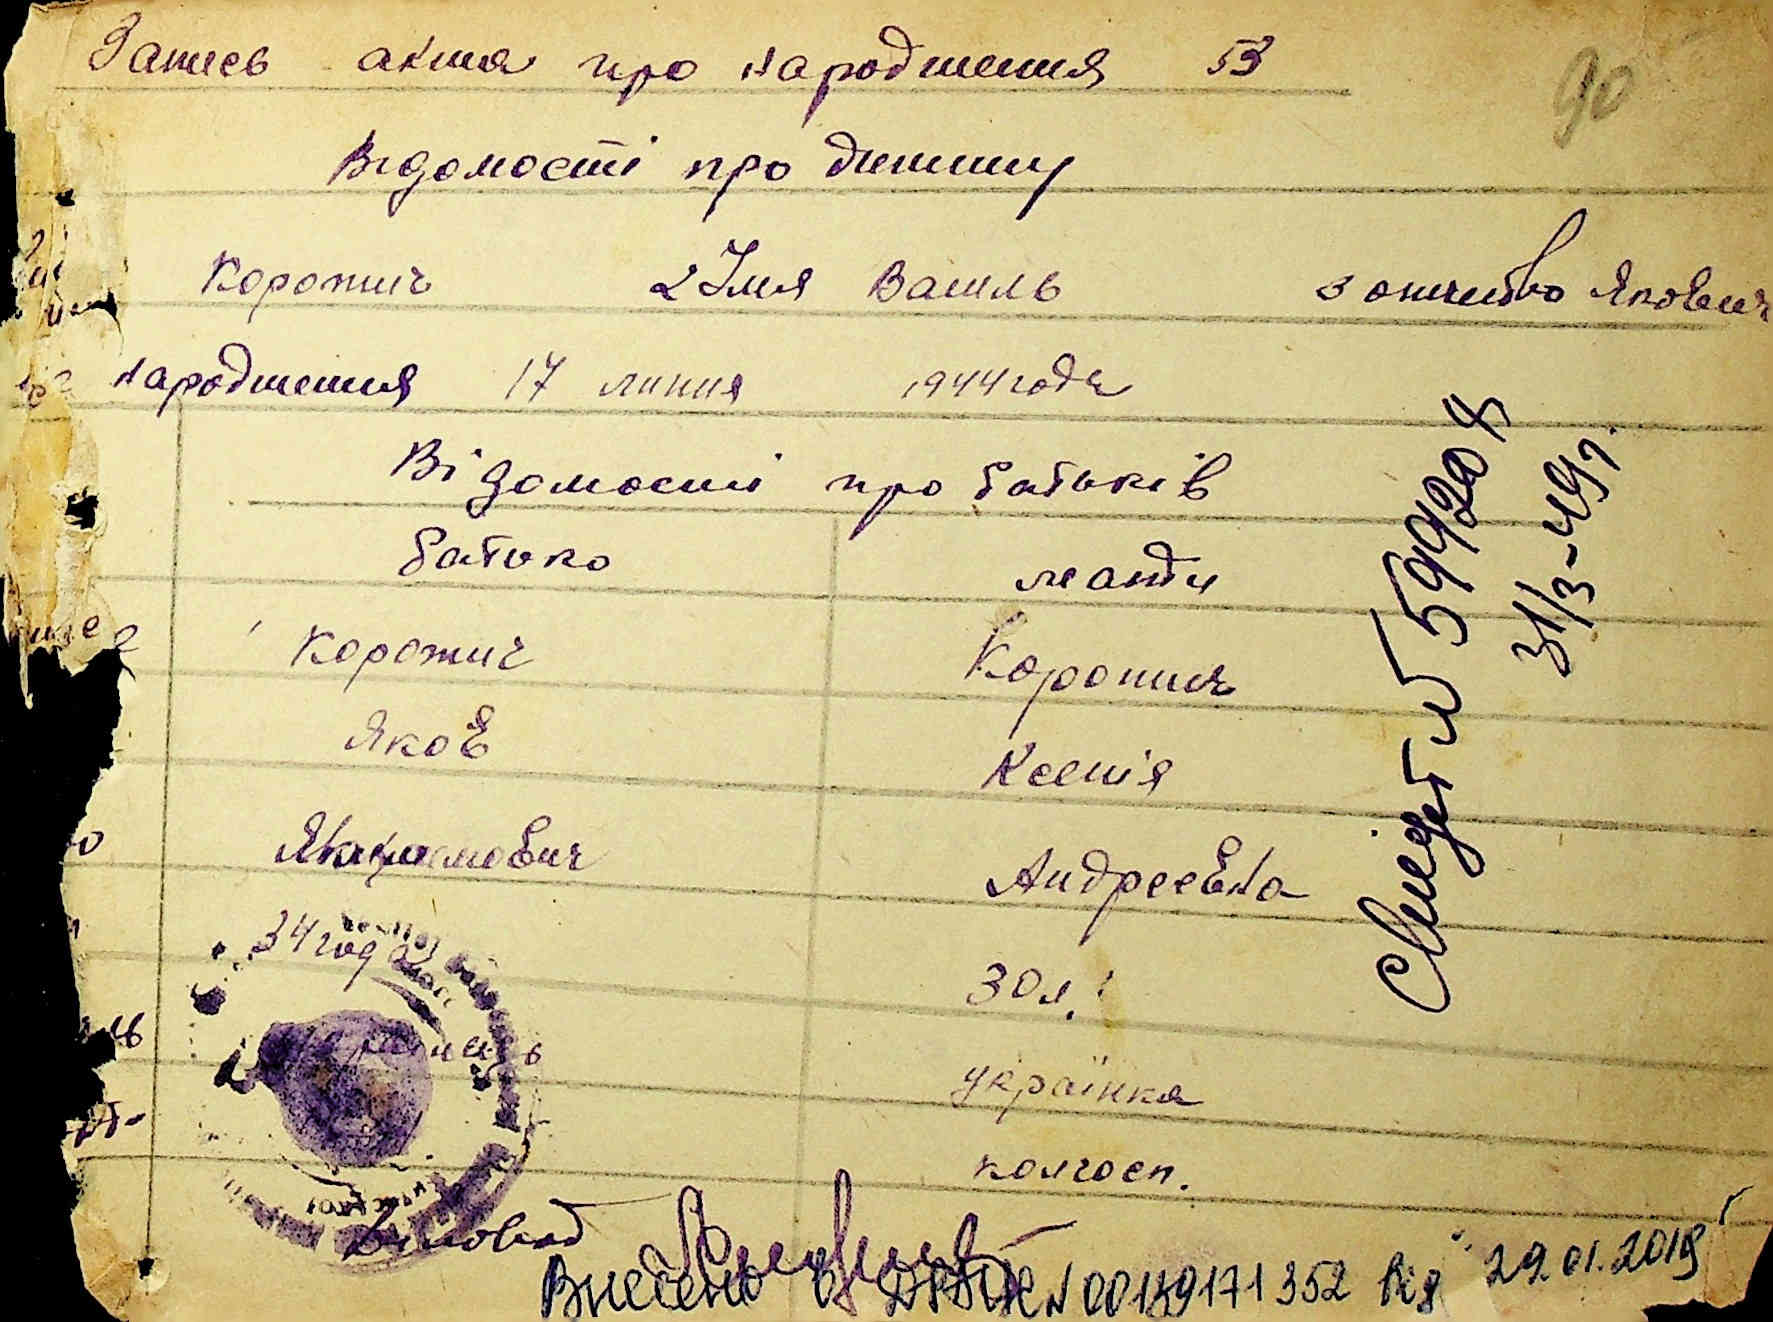 Запись акта про народження 53
90
Відомості про дитину
Коротич 2 Імя Василь 3 отчитво Якович
народження 17 липня 1944 года
Відомості про батьків
батько мати
Коротич Коротич
Яков Ксенія
Андреевна
34 год 30 л.
українка
колгосп.
Свидет № 599204
31/3-49 г.
Внесено в ДРАЦС № 00139171352 від 29.01.2019